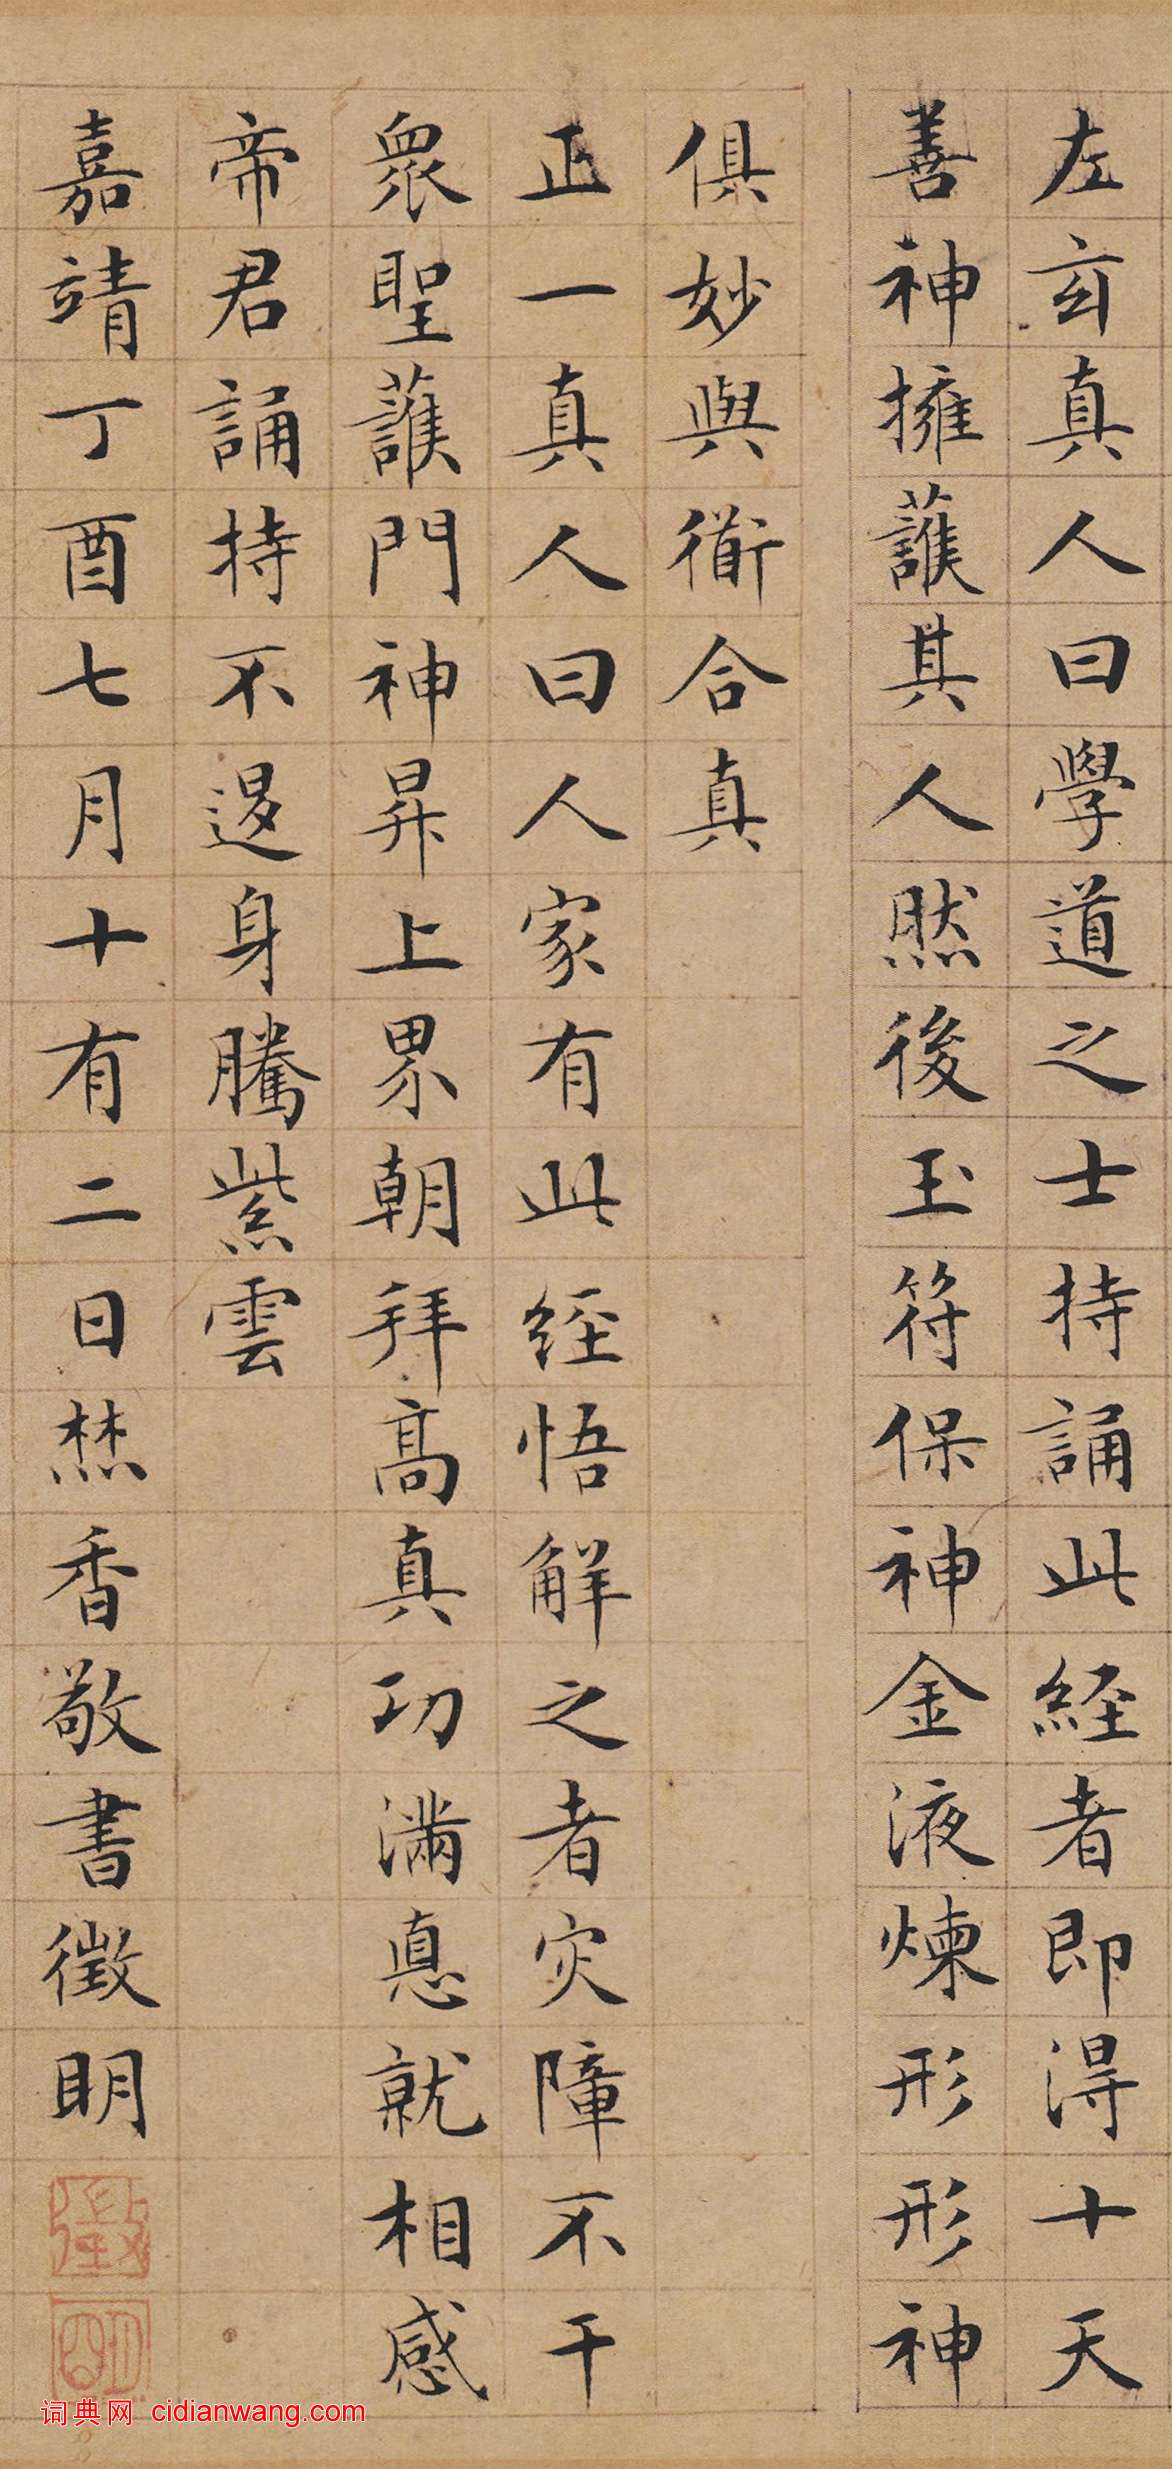 左玄真人曰學道之士持誦此經者即得十天
善神擁護其人然後玉符保神金液煉形形神
俱妙與衜合真
正一真人曰人家有此經悟解之者灾障不干
眾聖護門神昇上界朝拜高真功滿悳就相感
帝君誦持不退身騰紫雲
嘉靖丁酉七月十有二日焚香敬書徵明
徵
明
词典网 cidianwang.com